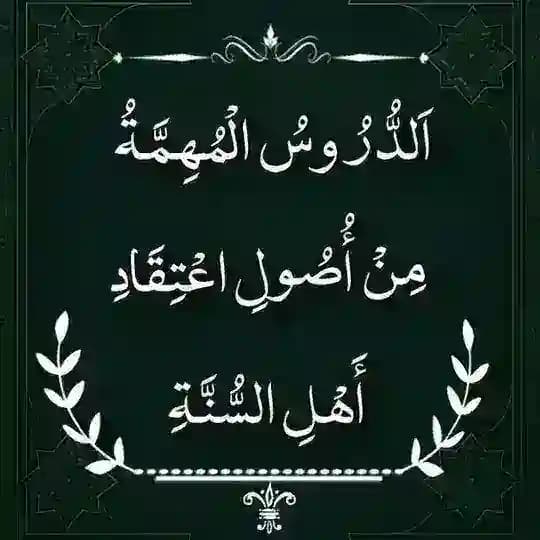 اَلدُّرُوسُ الْمُهِمَّةُ
مِنْ أُصُولِ اعْتِقَادِ
أَهْلِ السُّنَّةِ